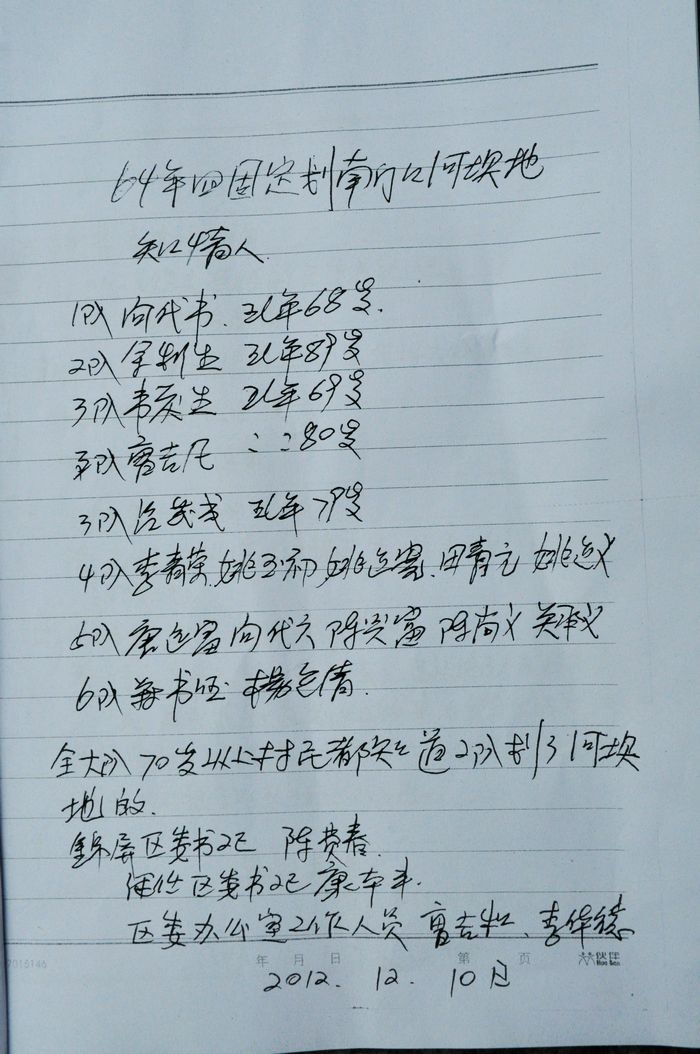 64年四固定划南门口河坝地
知情人
1队向代书.现年68岁.
2队余利生 现年89岁
3队韦庆生 现年69岁
3队曹吉凡 〃〃80岁
3队 现年79岁
4队李青荣 姚玉初 姚运宽.田青元 姚运义
5队唐运富 向代六 陈兴富 陈尚义 吴成义
6队 书 杨 清.
全大队70岁以上村民都知道2队划了河坝
地的.
锦屏区委书记 陈贵春.
继任区委书记 康本丰.
区委办公室工作人员 曹吉松、李华德
2015146 年 月 日 第 页 伙伴
2012.12.10日